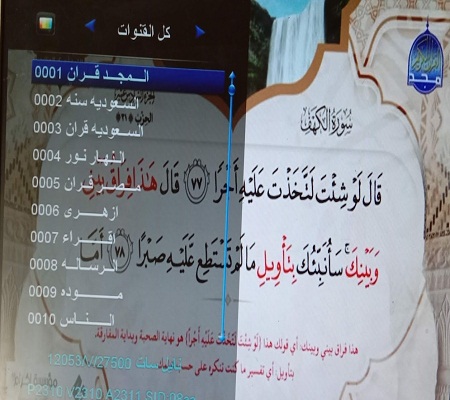 كل القنوات
0001 المجد قران
0002 السعوديه سنه
0003 السعوديه قران
0004 النهار نور
0005 مصر قران
0006 ازهرى
0007 اقراء
0008 الرساله
0009 موده
0010 الناس
مجد
سُورَةُ الكَهْفِ
قَالَ لَوْ شِئْتَ لَتَّخَذْتَ عَلَيْهِ أَجْرًا ٧٧ قَالَ هَذَا فِرَاقُ بَيْنِي
وَبَيْنِكَ سَأُنَبِّئُكَ بِتَأْوِيلِ مَا لَمْ تَسْتَطِع عَّلَيْهِ صَبْرًا ٧٨ أَمَّا
هذا فراق بيني وبينك: أي قولك هذا (لَوْ شِئْتَ لَتَّخَذْتَ عَلَيْهِ أَجْرًا) هو نهاية الصحبة وبداية المفارقة.
بتأويل: أي تفسير ما كنت تنكره على
نايل سات 12053/V/27500